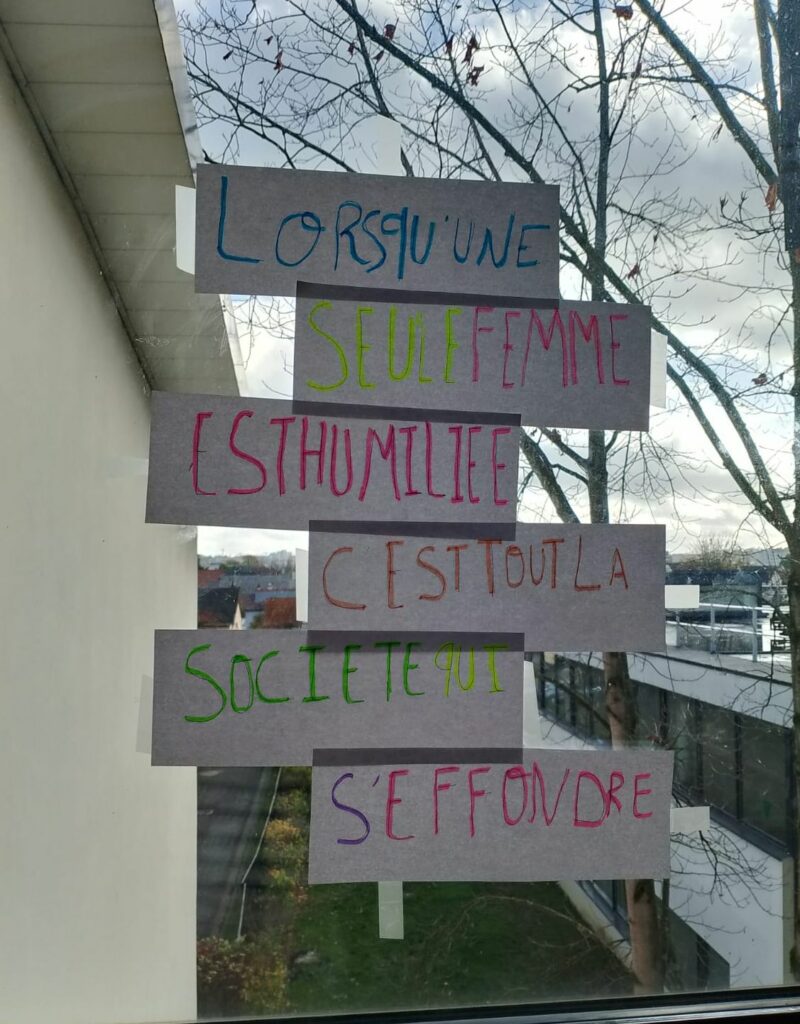 LORSQU'UNE
SEULE FEMME
EST HUMILIEE
C'EST TOUT LA
SOCIETE QUI
S'EFFONDRE